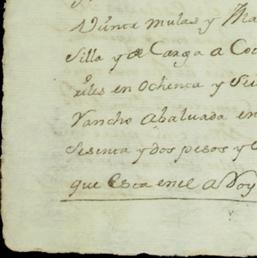 Veinte mulas y Ma
Silla y de Carga a Coc
rrles en Ochenta y Sie
Rancho abaluada en
Sesenta y dos pesos y
que Esta en el a Doy